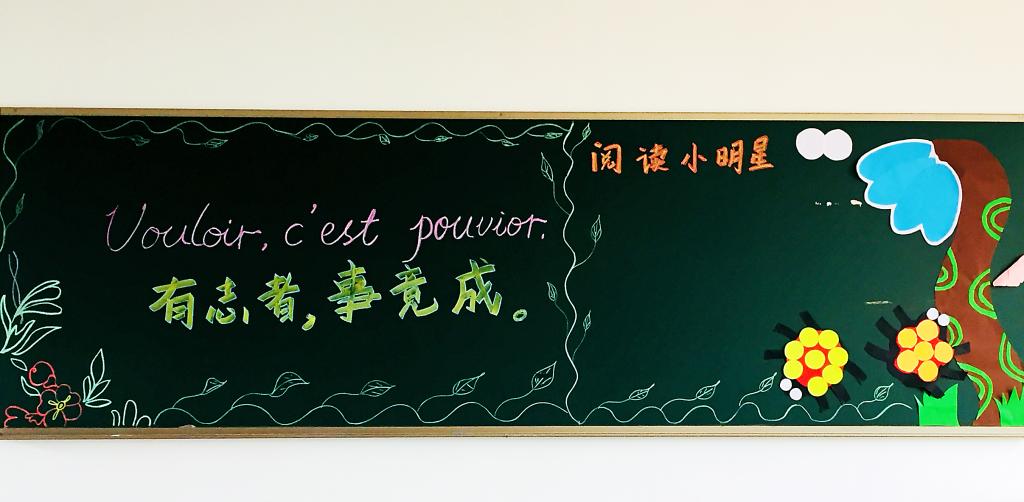 Vouloir, c'est pouvior.
有志者,事竟成。
阅读小明星